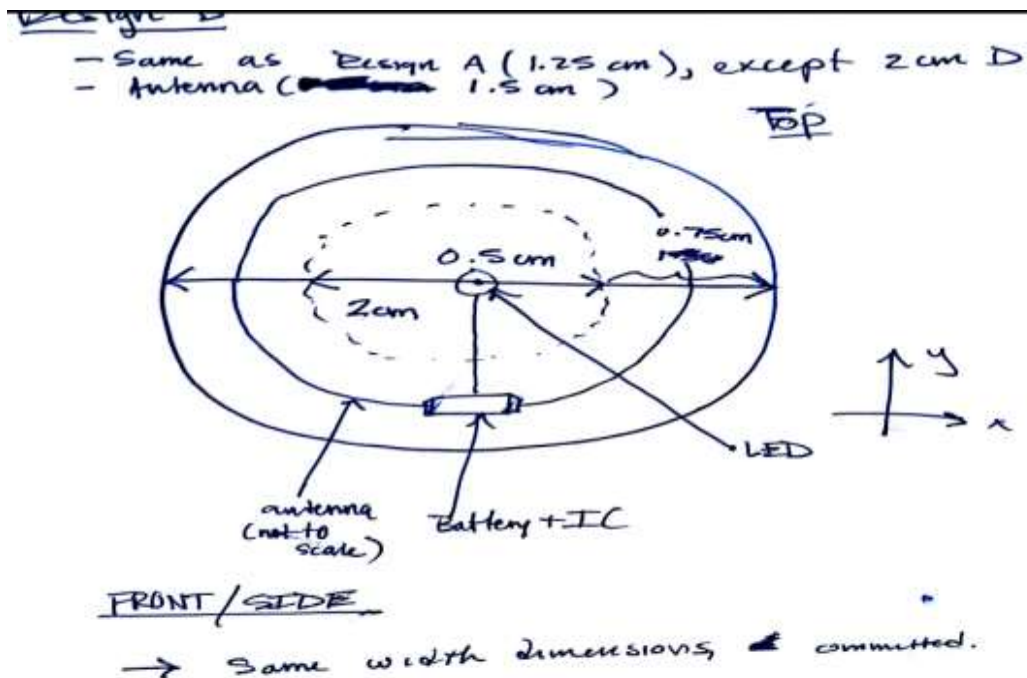 Design
- Same as Design A (1.25 cm), except 2 cm D
- Antenna ( 1.5 cm )
Top
0.75cm
0.5cm
2cm
y
x
LED
antenna
(not to
scale)
Battery + IC
FRONT/SIDE
→ Same width dimensions, committed.